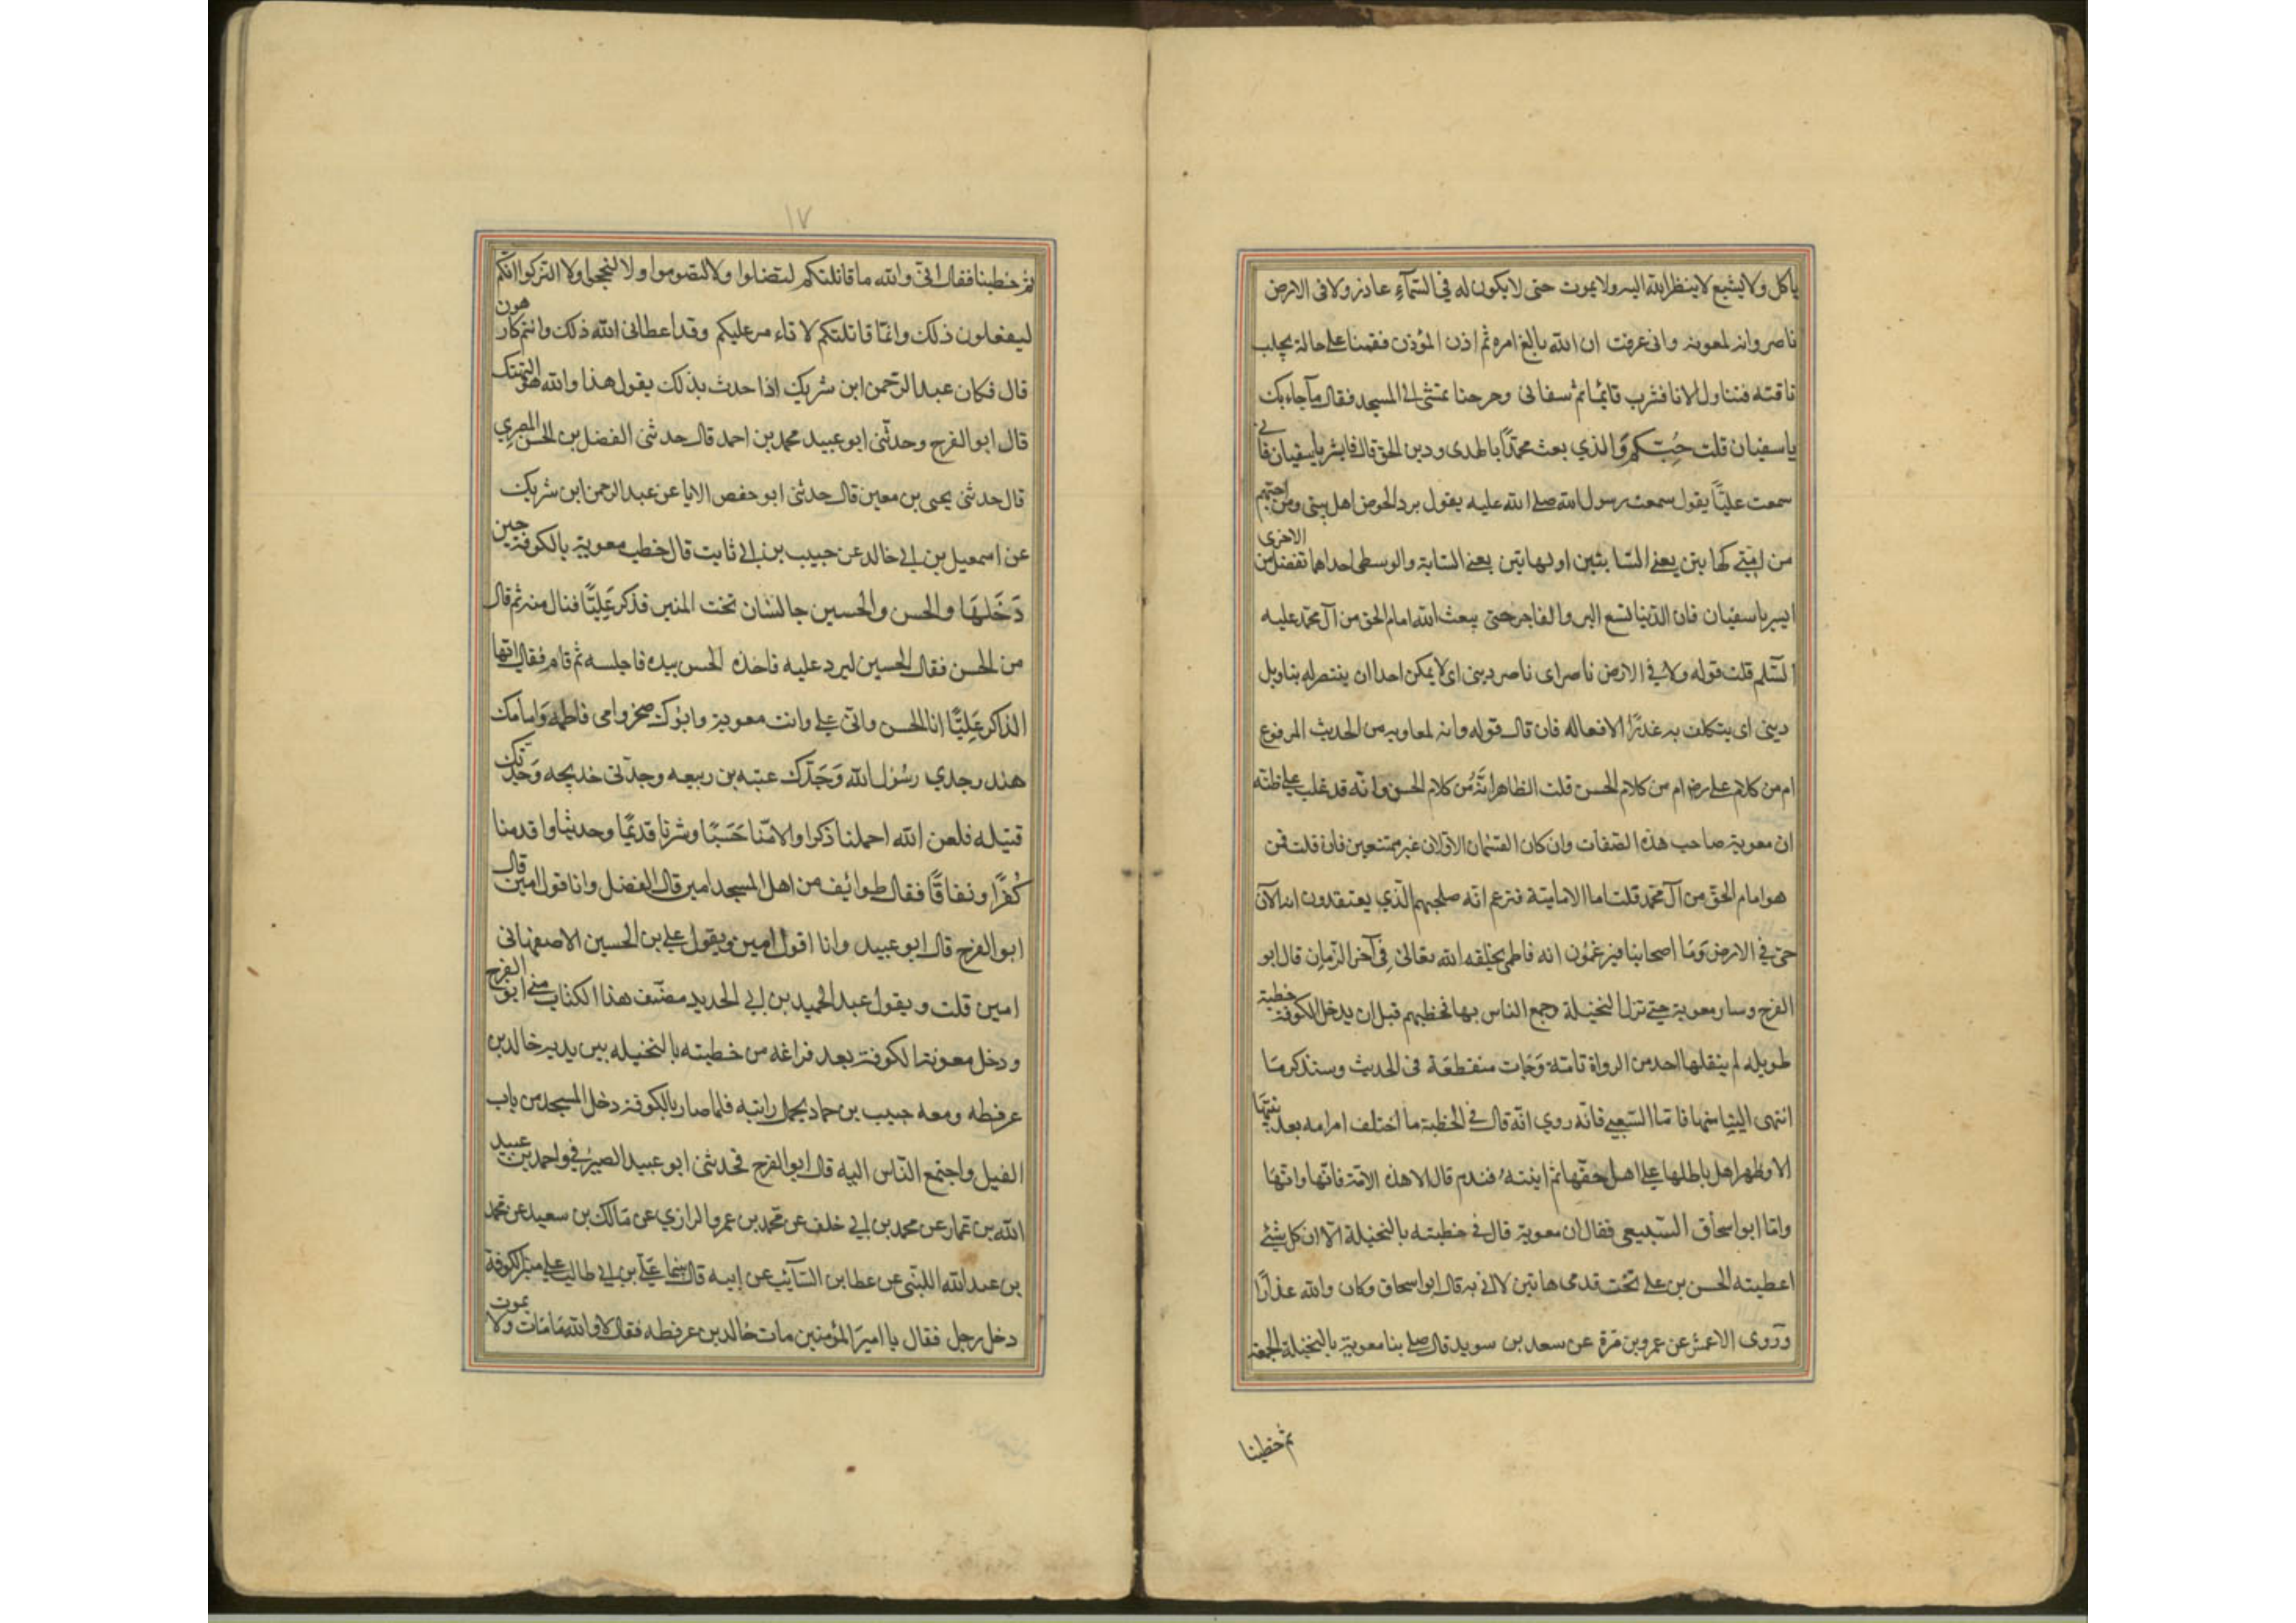 ياكل ولا يشبع لا ينظر الله اليه ولا يموت حتى لا يكون له في السمآء عاذر ولا فى الارض
ناصر وانه لمعوية وانى عرفت ان الله بالغ امره ثم اذن المؤذن فقمنا على حالة يحلب
ناقته فتناول الانا فشرب قايما ثم سقانى وخرجنا نمشى الى المسجد فقال ما جاء بك
يا سفيان قلت حُبّكم وَالذي بعث محمدًا بالهدى ودين الحق قال فابشر يا سفيان فانى
سمعت عليًّا يقول سمعت رسول الله صلى الله عليه يقول يرد الحوض اهل بيتى ومن احبهم
من امتي كهاتين يعنے السبابتين او كهاتين يعنے السبابة والوسطى احداهما تفضل من الاخرى
ابشر يا سفيان فان الدنيا تسع البر والفاجر حتى يبعث الله امام الحق من آل محمد عليه
السّلم قلت قوله ولا في الارض ناصر اى ناصر دينى اى لا يمكن احدا ان ينتصر له بتاويل
دينى اى يتكلف به عذرًا لافعاله فان قال قوله وانه لمعاويه من الحديث المرفوع
ام من كلام على رض ام من كلام الحسن قلت الظاهر انّه من كلام الحسن وانه قد غلب على ظنّه
ان معوية صاحب هذه الصفات وان كان القسمان الاولان غير ممتنعين فان قلت فمن
هو امام الحق من آل محمد قلت اما الامامية فتزعم انه صاحبهم الّذي يعتقدون انه الآن
حى في الارض وَمَا اصحابنا فيزعمُون انه فاطمى يخلقه الله تعالىٰ فى آخر الزمان قال ابو
الفرج وسار معوية حتے نزل النخيلة وجمع الناس بها فخطبهم قبل ان يدخل الكوفة خطبة
طويله لم ينقلها احد من الرواة تامّة وَجَات منقطعَة فى الحديث وسنذكر مَا
انتهى الينا منها فاما الشعبي فانّه روي انّه قال في الخطبة ما اختلف امر امه بعد نبيّها
الا وظهر اهل باطلها على اهل حقّها ثم انتبه فندم قال الا هذه الامّة فانّها وانّهَا
وامّا ابو اسحاق السّبيعى فقال ان معوية قال في خطبته بالنخيلة الا ان كل شئ
اعطيته الحسن بن على تحت قدمى هاتين لا افى به قال ابو اسحاق وكان والله غدارًا
وَروى الاعمش عن عمرو بن مرّة عن سعد بن سويد قال صلى بنا معوية بالنخيلة الجمعة
ثم خطبنا
١٧
ثم خطبنا فقال انى والله ما قاتلتكم لتصلوا ولا لتصوموا ولا لتحجوا ولا لتزكوا انّكم
ليفعلون ذلك وانمّا قاتلتكم لاتاء مر عليكم وقد اعطانى الله ذلك وانتم كارهون
قال فكان عبد الرّحمن ابن شريك اذا حدث بذلك يقول هذا والله هو التهتك
قال ابو الفرج وحدثنى ابو عبيد محمد بن احمد قال حدثنى الفضل بن الحسن المصرِي
قال حدثنى يحيى بن معين قال حدثنى ابو حفص الابا عن عبد الرحمن ابن شريك
عن اسمعيل بن ابي خالد عن حبيب بن ابي ثابت قال خطب معوية بالكوفة حين
دَخَلهَا والحسن والحسين جالسان تحت المنبر فذكر عَلِيًّا فنال منه ثم قال
من الحسن فقال الحسين ليرد عليه فاخذه الحسن بيده فاجلسه ثم قام فقال ايها
الذاكر عَلِيًّا انا الحسن وابى على وانت معوية وابُوك صخر وامى فاطمه وَامامك
هند وجدي رسُول الله وَجَدّك عتبه بن ربيعه وجدّتى خديجه وَجدّتك
قتيله فلعن الله اخملنا ذكرا والامنا حَسَبًا وشرنا قديمًا وحديثا واقدمنا
كُفرًا ونفاقًا فقال طوائف من اهل المسجد امين قال الفضل وانا اقول امين قال
ابو الفرج قال ابو عبيد وانا اقول امين ويقول على بن الحسين الاصفهانى
امين قلت ويقول عبد الحميد بن ابي الحديد مصنّف هذا الكتاب امين ابو الفرج
ودخل معوية الكوفة بعد فراغه من خطبته بالنخيله بين يديه خالد بن
عرفطه ومعه حبيب بن حماد يحمل رايته فلما صار بالكوفة دخل المسجد من باب
الفيل واجتمع النّاس اليه قال ابو الفرج فحدثنى ابو عبيد الصيرفي واحمد بن عبيد
الله بن عمار عن محمد بن ابي خلف عن محمد بن عمرو الرازي عن مَالك بن سعيد عن محمد
بن عبد الله الليثى عن عطا بن السّآئب عن ابيه قال بينما علي بن ابي طالب على منبر الكوفة
دخل رجل فقال يا امير المؤمنين مات خالد بن عرفطه فقال لا والله مَا مَات ولا يموت